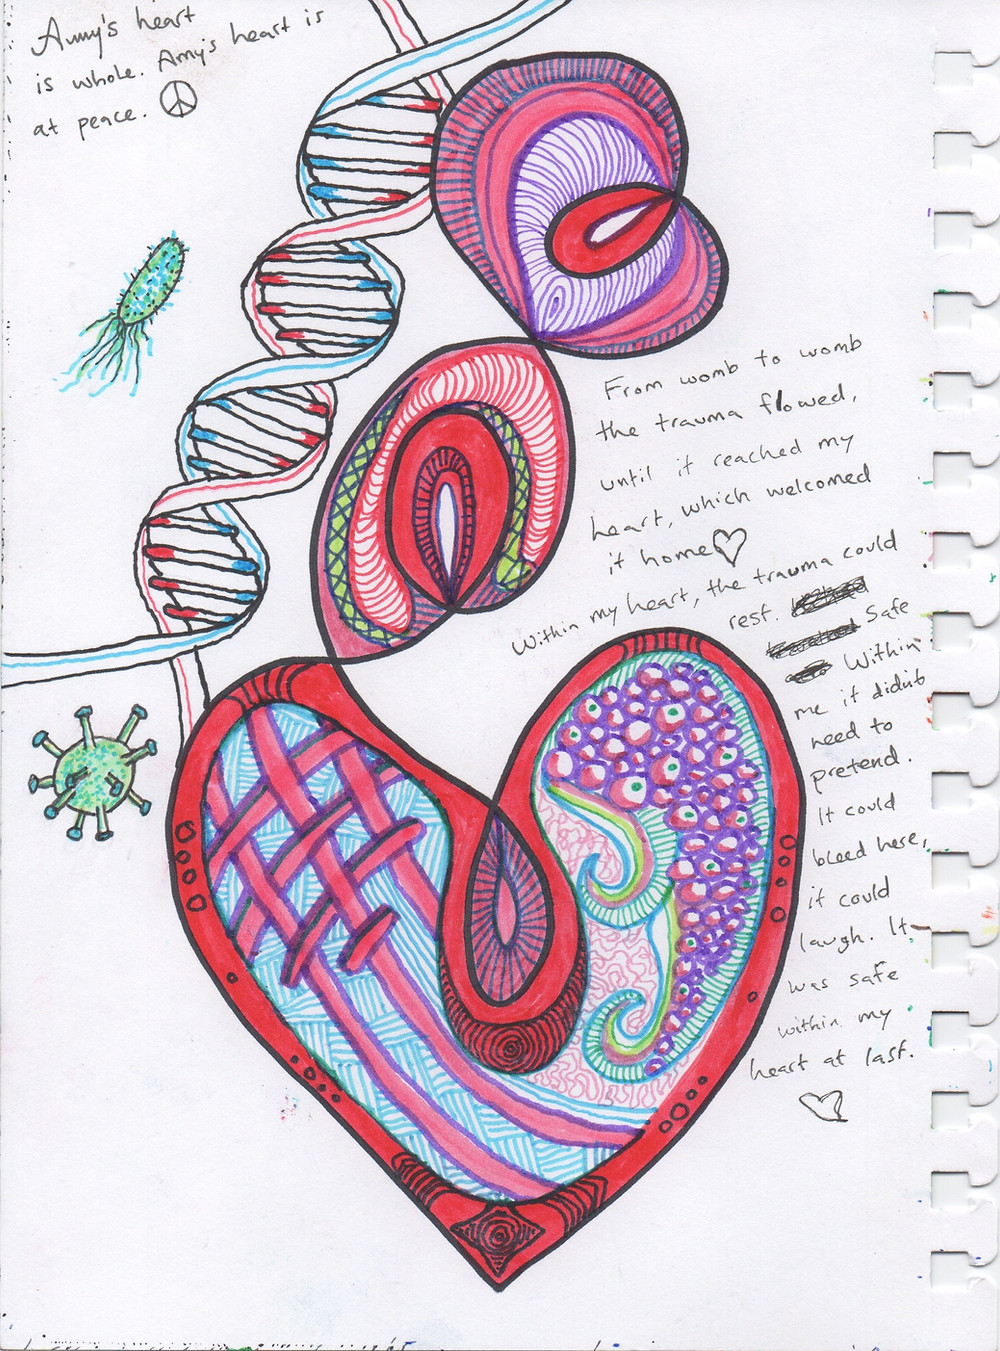 Amy's heart
is whole. Amy's heart is
at peace.
From womb to womb
the trauma flowed,
until it reached my
heart, which welcomed
it home
Within my heart, the trauma could
rest.
Safe
Within
me it didn't
need to
pretend.
It could
bleed here,
it could
laugh. It
was safe
within my
heart at last.